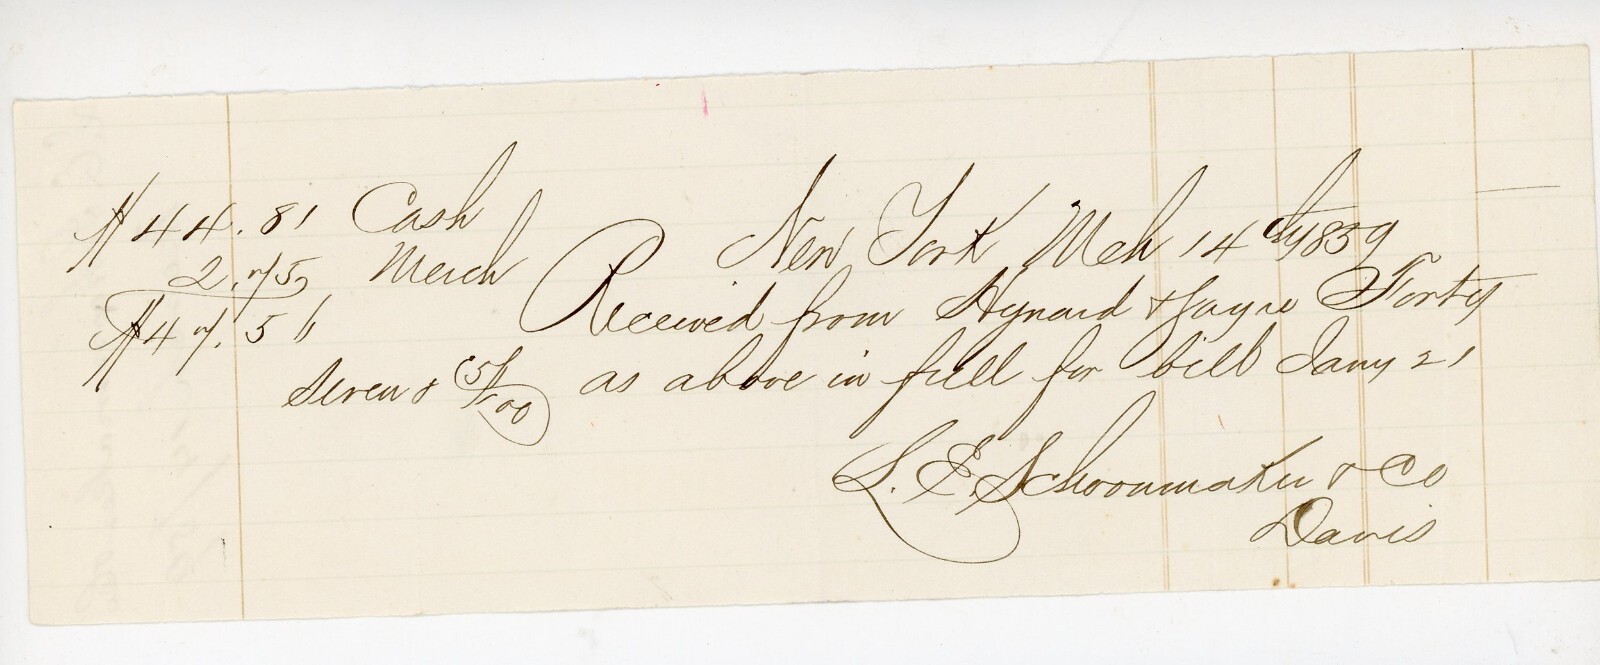 $44.81 Cash
2.75 Merch
$47.56
New York Mch 14th 1859
Received from Hynard & Jayne Forty
Seven & 56/100 as above in full for bill Jany 21
L. E. Schoonmaker & Co
Davis